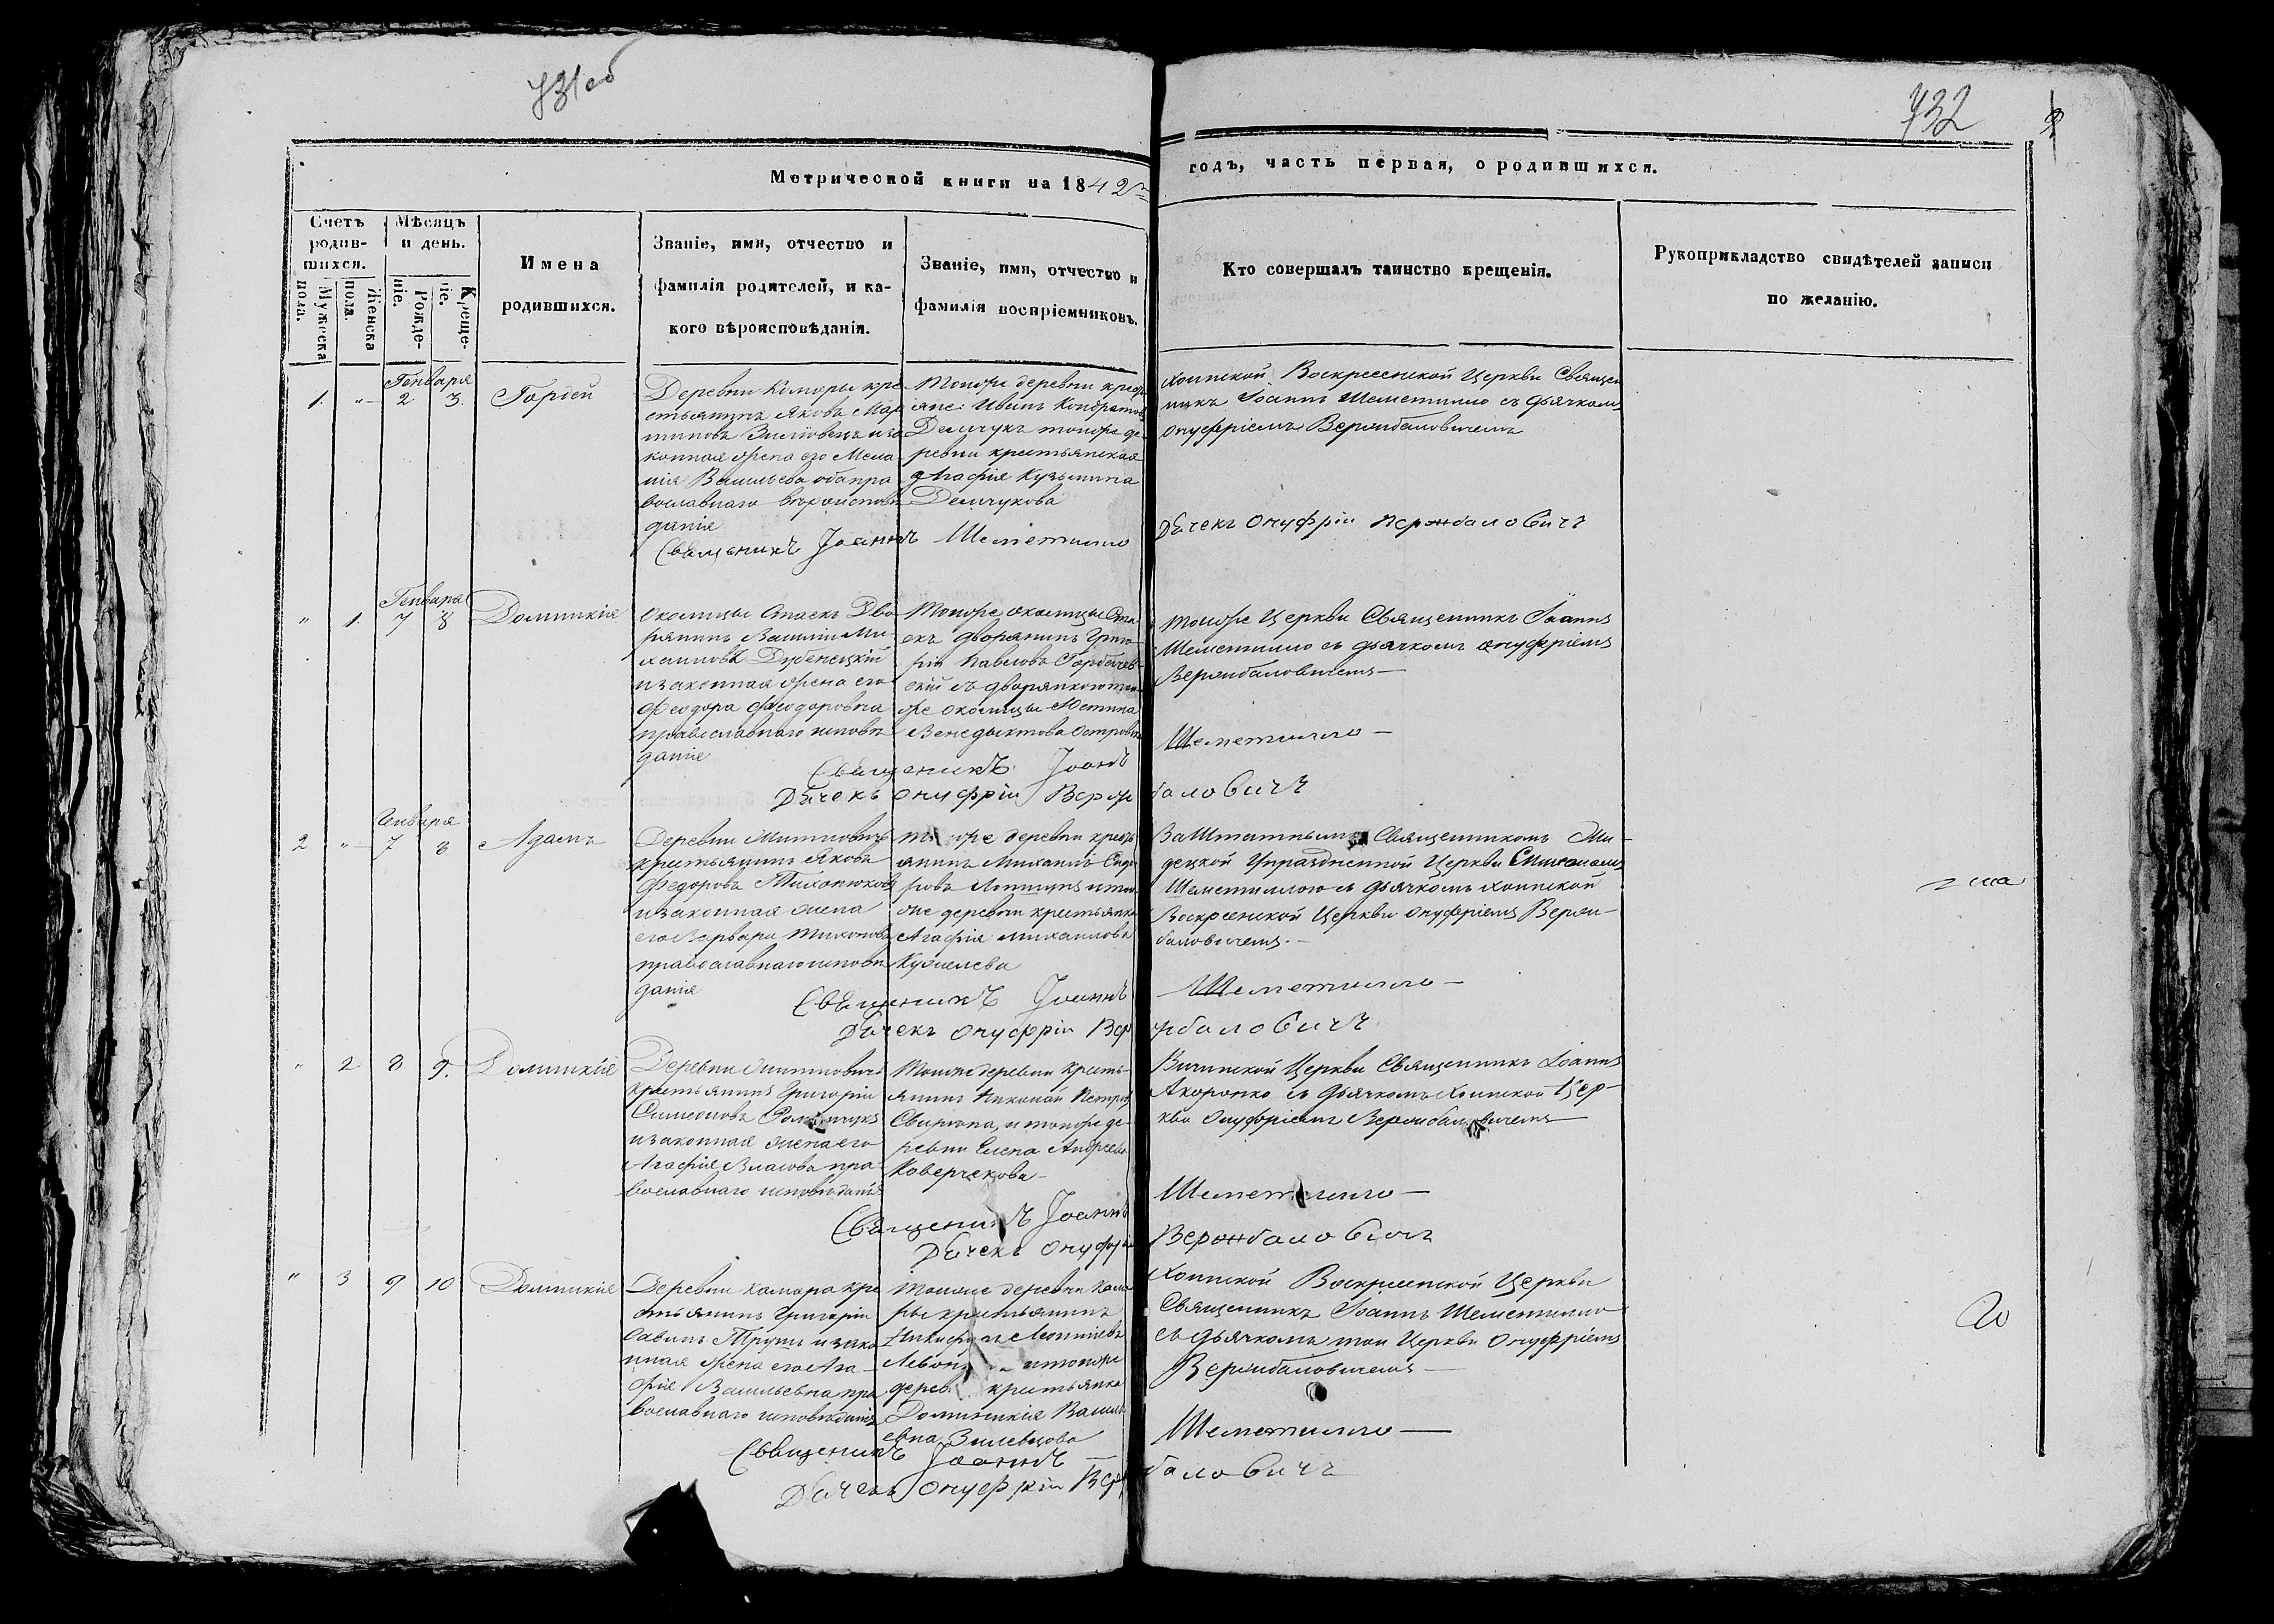 731 об
732
Метрической книги на 1842
годъ, часть первая, о родившихся.
Счетъ родив-шихся.
Мужеска пола.
Женска пола.
Мѣсяцъ и день.
Рожде-ніе.
Креще-ніе.
Имена
родившихся.
Званіе, имя, отчество и
фамилія родителей, и ка-
кого вѣроисповѣданія.
Званіе, имя, отчество и
фамилія воспріемниковъ.
Кто совершалъ таинство крещенія.
Рукоприкладство свидѣтелей записи
по желанію.
Генваря
1. " 2 3.
Гордей
Деревни Коморы кре
стьянинъ Яковъ Мар
тиновъ и за
конная жена его Мела
нія Васильева оба пра
вославнаго вѣроисповѣ
данія
Тойже деревни кресть
яне: Иванъ Кондратовъ
Демчукъ тойже де
ревни крестьянская
Агафія Кузьмина
Демчукова
Хоинской Воскресенской Церкви Священ
никъ Іоаннъ Шеметилло съ дьячкомъ
Онуфріемъ Вержбаловичемъ
Священикъ Іоаннъ Шеметилло
Дѣчекъ Онуфріи Вержбаловичъ
Генваря
" 1 7 8
Домникія
Околицы Стаекъ Дво
рянинъ Василій Ми
хаиловъ Дубенецкій
и законная жена его
Феодора Феодоровна
православнаго исповѣ
данія
Тойже околицы Ста
екъ дворянинъ Григо
рій Павловъ Горбачев
скій съ дворянкою той
же околицы Юстина
Венедыктова
Тойже Церкви Священникъ Іоаннъ
Шеметилло съ дьячкомъ Онуфріемъ
Вержбаловичемъ
Священикъ Іоаннъ Шеметилло
Дѣчекъ Онуфріи Вержбаловичъ
Генваря
2 " 7 8
Адамъ
Деревни
крестьянинъ Яковъ
Федоровъ Тихонюковъ
и законная жена
его Варвара Тихонова
православнаго исповѣ
данія
Тойже деревни кресть
янинъ Михаилъ
и той
же деревни крестьянка
Агафія Михаилова
Заштатнымъ Священникомъ
Упраздненной Церкви
Шеметиллою съ дьячкомъ Хоинской
Воскресенской Церкви Онуфріемъ Верж-
баловичемъ.
Священикъ Іоаннъ Шеметилло
Дѣчекъ Онуфріи Вержбаловичъ
" 2 8 9.
Домникія
Деревни
крестьянинъ Григорій
Симеоновъ
и законная жена его
Агафія Власова пра
вославнаго исповѣданія
Тойже деревни кресть
янинъ Николай Петровъ
и тойже де
ревни Елена Андреева
Коверчекова
Вичинской Церкви Священникъ Іоаннъ
Акоронко съ дьячкомъ Хоинской Цер-
кви Онуфріемъ Вержбаловичемъ
Священикъ Іоаннъ Шеметилло
Дѣчекъ Онуфріи Вержбаловичъ
" 3 9 10
Домникія
Деревни Камора кре
стьянинъ Григорій
Савинъ и зако
нная жена его Ага
фія Васильевна пра
вославнаго исповѣданія
Тойже деревни Камо
ры крестьянинъ
и тойже
дерев крестьянка
Домникія Василь
евна
Хоинской Воскресенской Церкви
Священникъ Іоаннъ Шеметилло
съ дьячкомъ той Церкви Онуфріемъ
Вержбаловичемъ
Священикъ Іоаннъ Шеметилло
Дѣчекъ Онуфріи Вержбаловичъ